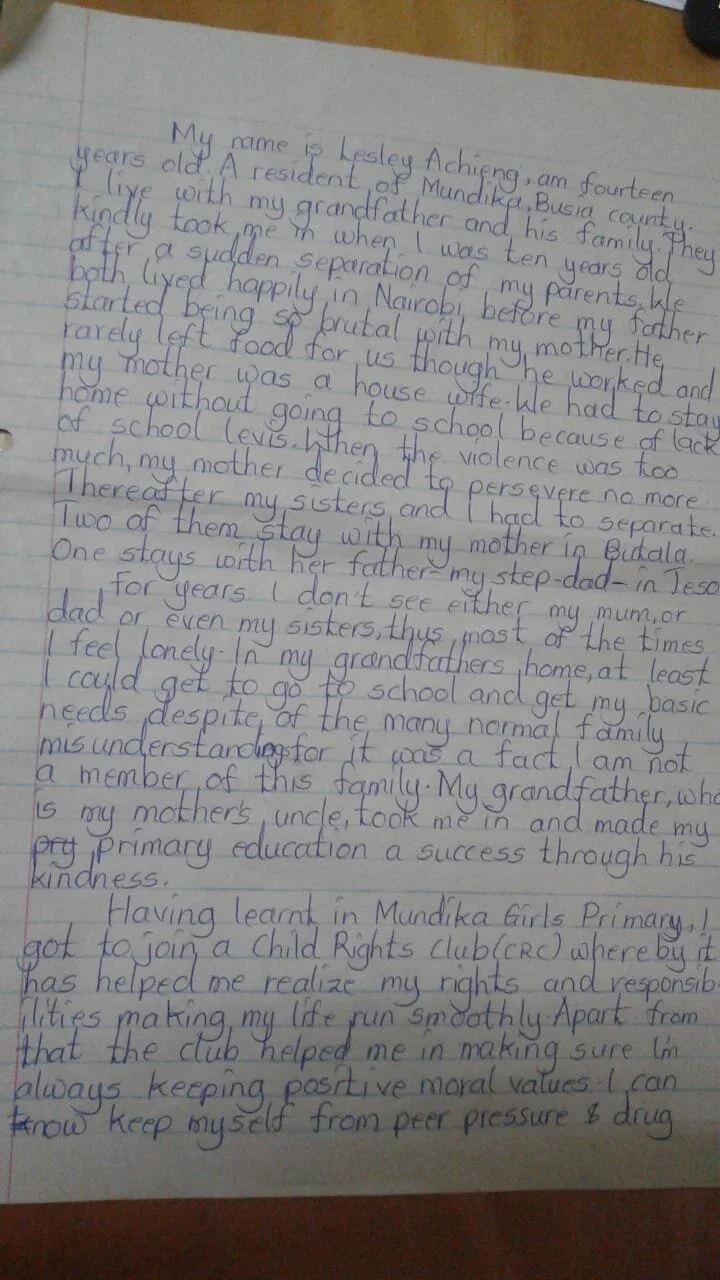 My name is Lesley Achieng, am fourteen
years old. A resident of Mundika, Busia county.
I live with my grandfather and his family. They
kindly took me in when I was ten years old
after a sudden separation of my parents. We
both lived happily in Nairobi before my father
started being so brutal with my mother. He
rarely left food for us though he worked and
my mother was a house wife. We had to stay
home without going to school because of lack
of school levis. When the violence was too
much, my mother decided to persevere no more.
Thereafter my sisters and I had to separate.
Two of them stay with my mother in Butala.
One stays with her father-my step-dad-in Teso
for years I don't see either my mum, or
dad or even my sisters, thus most of the times
I feel lonely. In my grandfathers home, at least
I could get to go to school and get my basic
needs despite of the many normal family
misunderstandings for it was a fact I am not
a member of this family. My grandfather, who
is my mother's uncle, took me in and made my
pry primary education a success through his
kindness.
Having learnt in Mundika Girls Primary, I
got to join a Child Rights Club (CRC) where by it
has helped me realize my rights and responsib-
ilities making my life run smoothly. Apart from
that the club helped me in making sure I'm
always keeping positive moral values. I can
know keep myself from peer pressure & drug